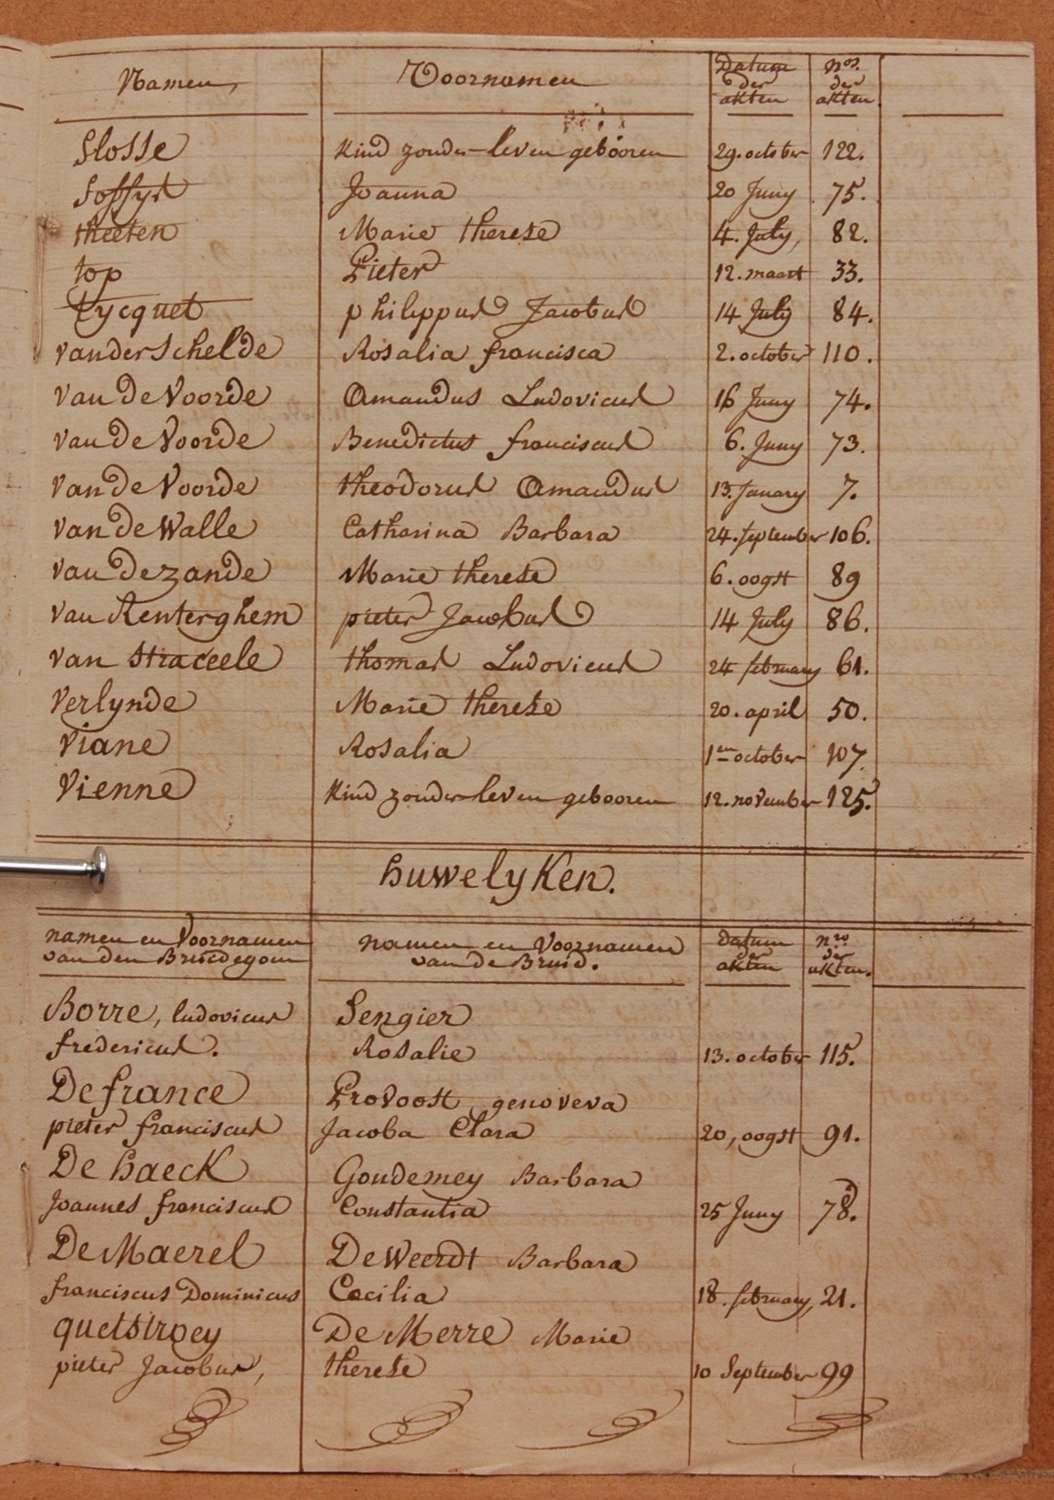 Namen, Voornamen Datum der akten nos. der akten.
Slosse Kind zonder leven gebooren 29. october 122.
Soffys Joanna 20 Juny 75.
theeten Marie therese 4. July, 82.
top Pieter 12. maart 33.
tycquet philippus Jacobus 14 July 84.
vanderschelde Rosalia francisca 2. october 110.
van De Voorde Amandus Ludovicus 16 Juny 74.
van de Voorde Benedictus franciscus 6. Juny 73.
van de Voorde theodorus Amandus 13. January 7.
van de Walle Catharina Barbara 24. september 106.
van de zande Marie therese 6. oogst 89
van Renterghem pieter Jacobus 14 July 86.
van straceele thomas Ludovicus 24 february 61.
verlynde Marie therese 20. april 50.
viane Rosalia 1en october 107.
vienne Kind zonder leven gebooren 12. november 125.
huwelyken.
namen en Voornamen van den Bruidegom namen en Voornamen van de Bruid. Datum der akten nro der akten.
Borre, ludovicus Sengier
fredericus. Rosalie 13. october 115.
De france Provoost genoveva
pieter franciscus Jacoba Clara 20, oogst 91.
De haeck Goudemey Barbara
Joannes franciscus Constantia 25 Juny 78.
De Maerel De Weerdt Barbara
franciscus Dominicus Cecilia 18. february, 21.
quetstroey De Merre Marie
pieter Jacobus, therese 10 September 99